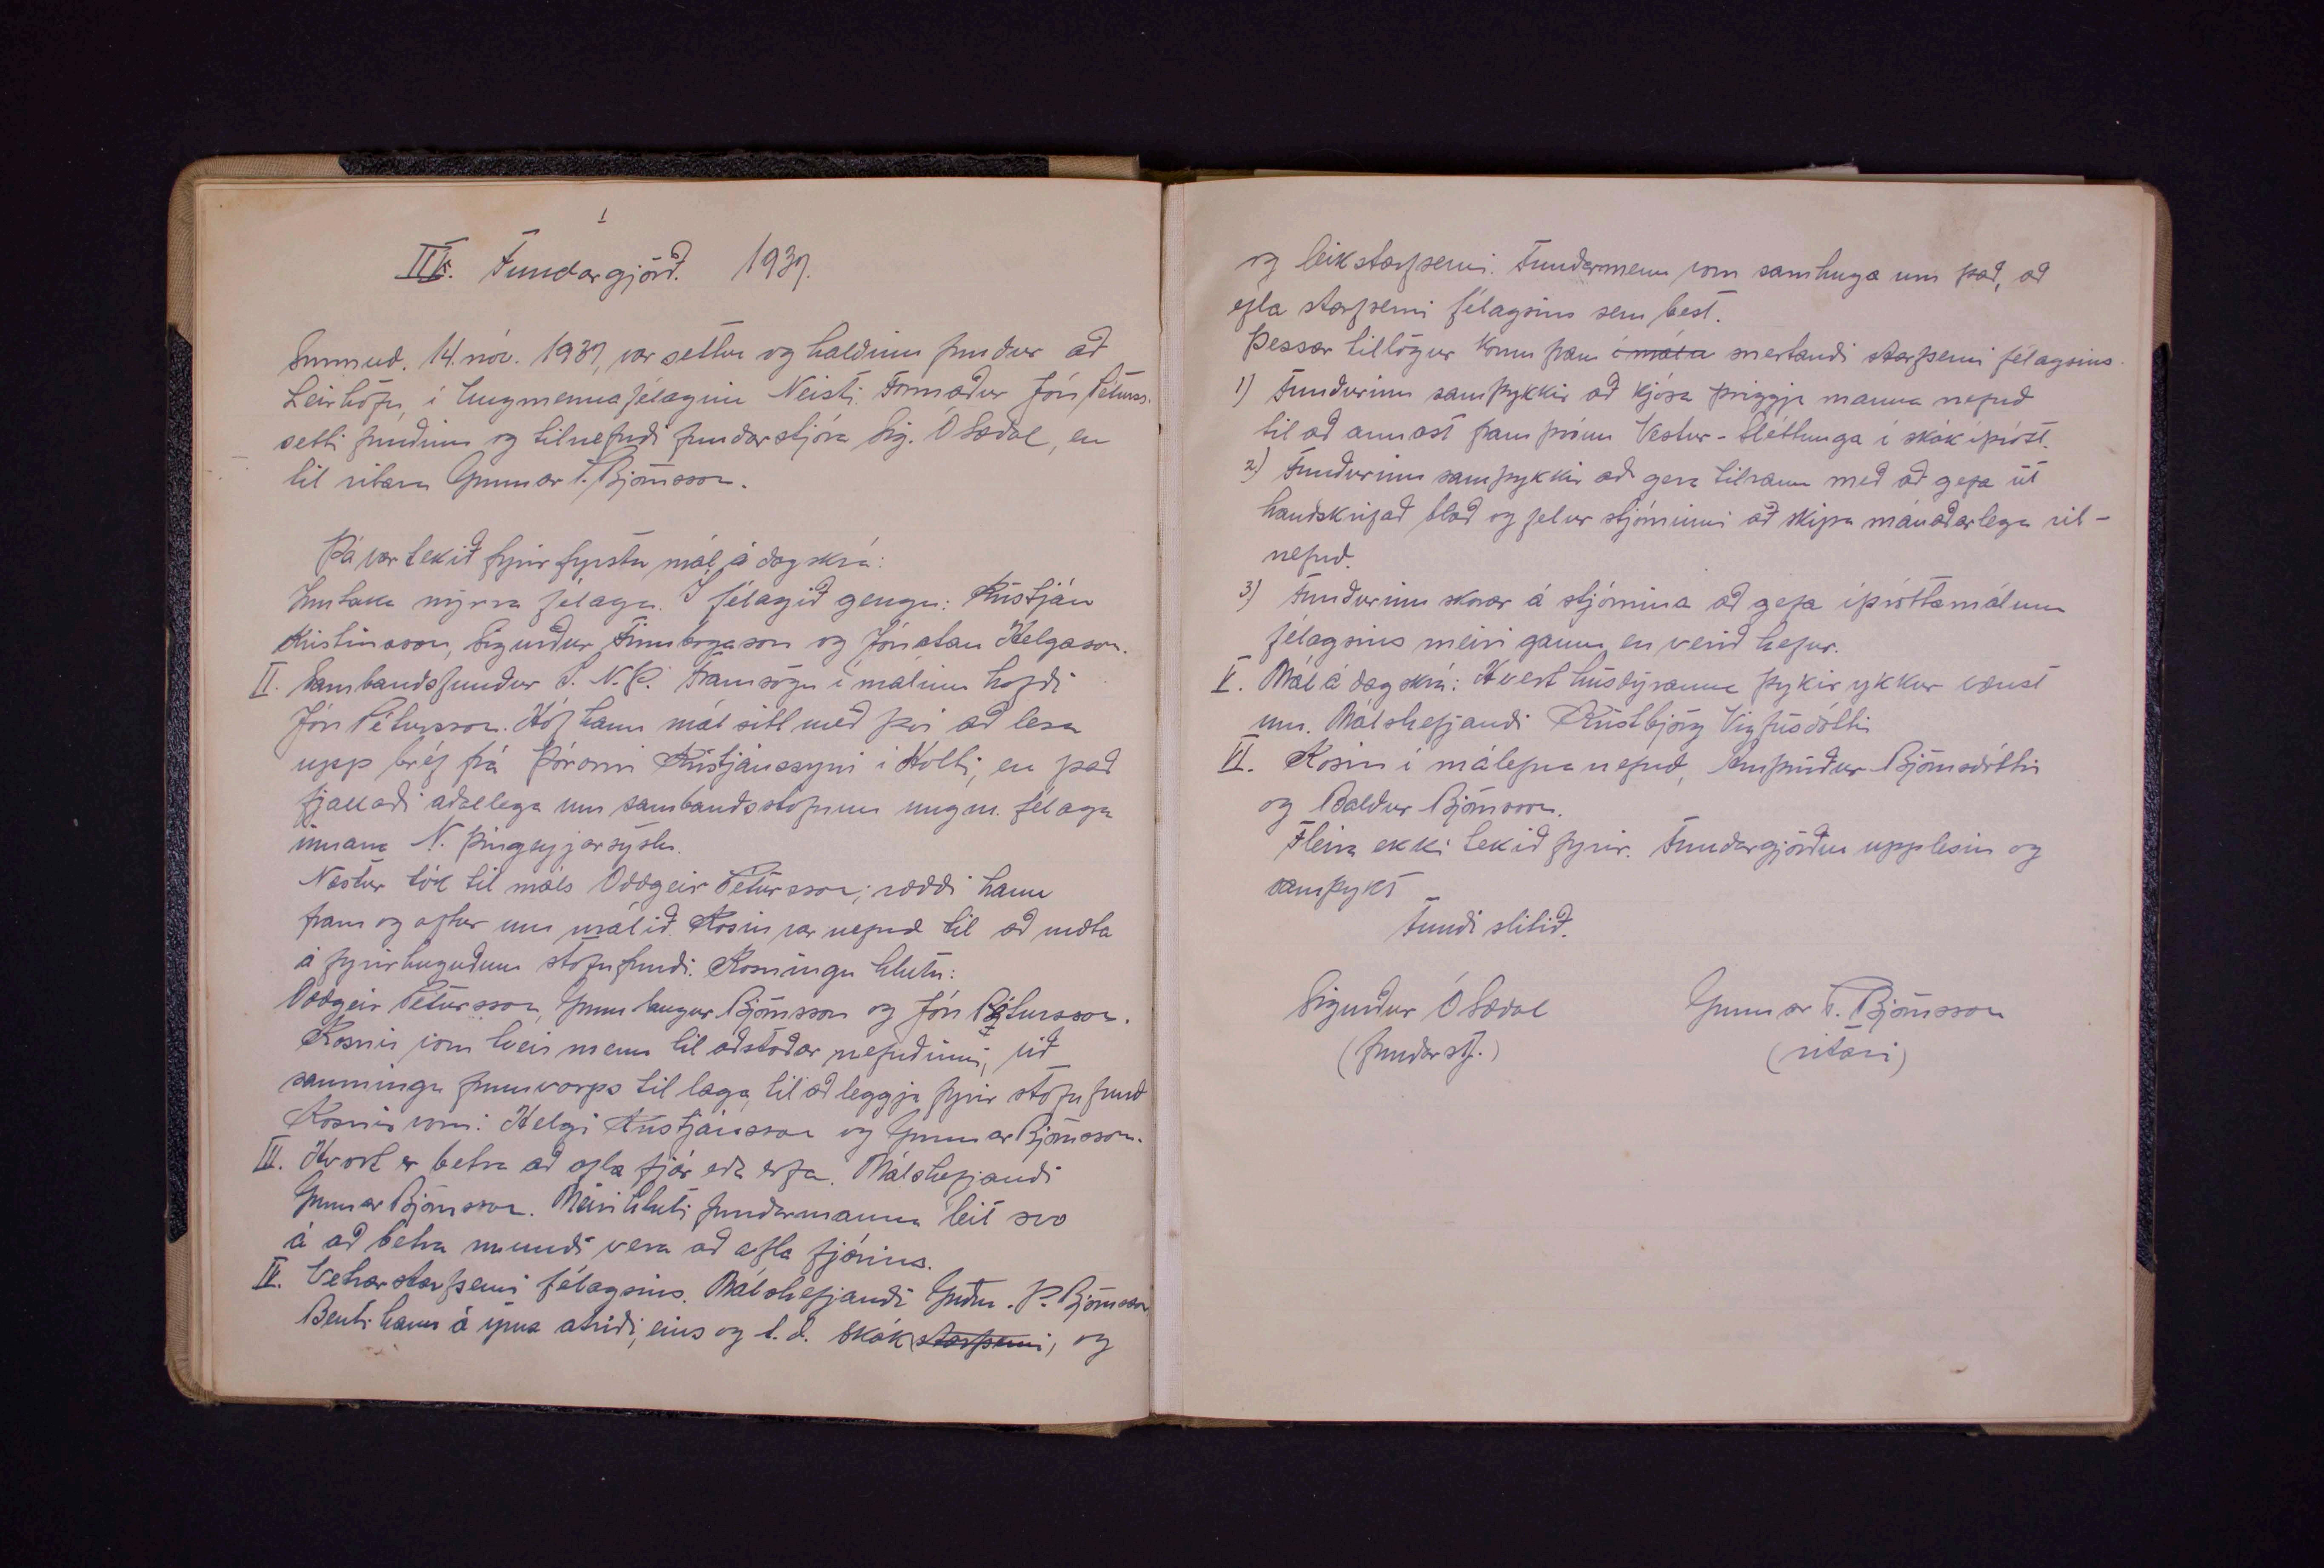 III. Fundargjörð. 1937.
Sunnud. 14. nóv. 1937, var settur og haldinn fundur að
Leirhöfn, í Ungmennafélaginu Neisti. Formaður Jón Péturss.
setti fundinn og tilnefndi fundarstjóra Sig. Ó Sædal, en
til ritara Gunnar T. Björnsson.
Þá var tekið fyrir fyrsta mál á dagskrá:
Inntaka nýrra félaga. Í félagið gengu: Kristján
Kristinsson, Sigurður Finnbogason og Jónatan Helgason.
II. Sambandsfundur S. N. Þ. Framsögu í málinu hafði
Jón Pétursson. Hóf hann mál sitt með því að lesa
upp bréf frá Þórarni Kristjánssyni í Holti, en það
fjallaði aðallega um sambandsstofnun ungm. félaga
innan N. Þingeyjarsýslu.
Næstur tók til máls Oddgeir Pétursson; ræddi hann
fram og aftur um málið. Kosin var nefnd til að mæta
á fyrirhuguðum stofnfundi. Kosningu hlutu:
Oddgeir Pétursson, Gunnlaugur Björnsson og Jón Pétursson.
Kosnir voru tveir menn til aðstoðar nefndinni, við
samningu frumvarps til laga, til að leggja fyrir stofnfund
Kosnir voru: Helgi Kristjánsson og Gunnar Björnsson.
III. Hvort er betra að afla fjár eða erfa. Málshefjandi
Gunnar Björnsson. Meiri hluti fundarmanna leit svo
á að betra mundi vera að afla fjárins.
IV. Vetrarstarfsemi félagsins. Málshefjandi Guðm. P. Björnsson
Benti hann á ýmsa atriði, eins og t.d. skák starfsemi, og
og leikstarfsemi. Fundarmenn voru samhuga um það, að
efla starfsemi félagsins sem best.
Þessar tillögur komu fram í málu snertandi starfsemi félagsins.
1) Fundurinn samþykkir að kjósa þriggja manna nefnd
til að annast framþróun Vestur-Sléttunga í skákíþrótt.
2) Fundurinn samþykkir að gera tilraun með að gefa út
handskrifað blað og felur stjórninni að skipa mánaðarlega rit-
nefnd.
3) Fundurinn skorar á stjórnina að gefa íþróttamálum
félagsins meiri gaum en verið hefur.
V. Mál á dagskrá: Hvert húsdýranna þykir ykkur vænst
um. Málshefjandi Kristbjörg Vigfúsdóttir
VI. Kosin í málefnanefnd, Arnþrúður Björnsdóttir
og Baldur Björnsson.
Fleira ekki tekið fyrir. Fundargjörðin upplesin og
samþykt
Fundi slitið.
Sigurður Ó Sædal Gunnar T. Björnsson
(fundarstj.) (ritari)